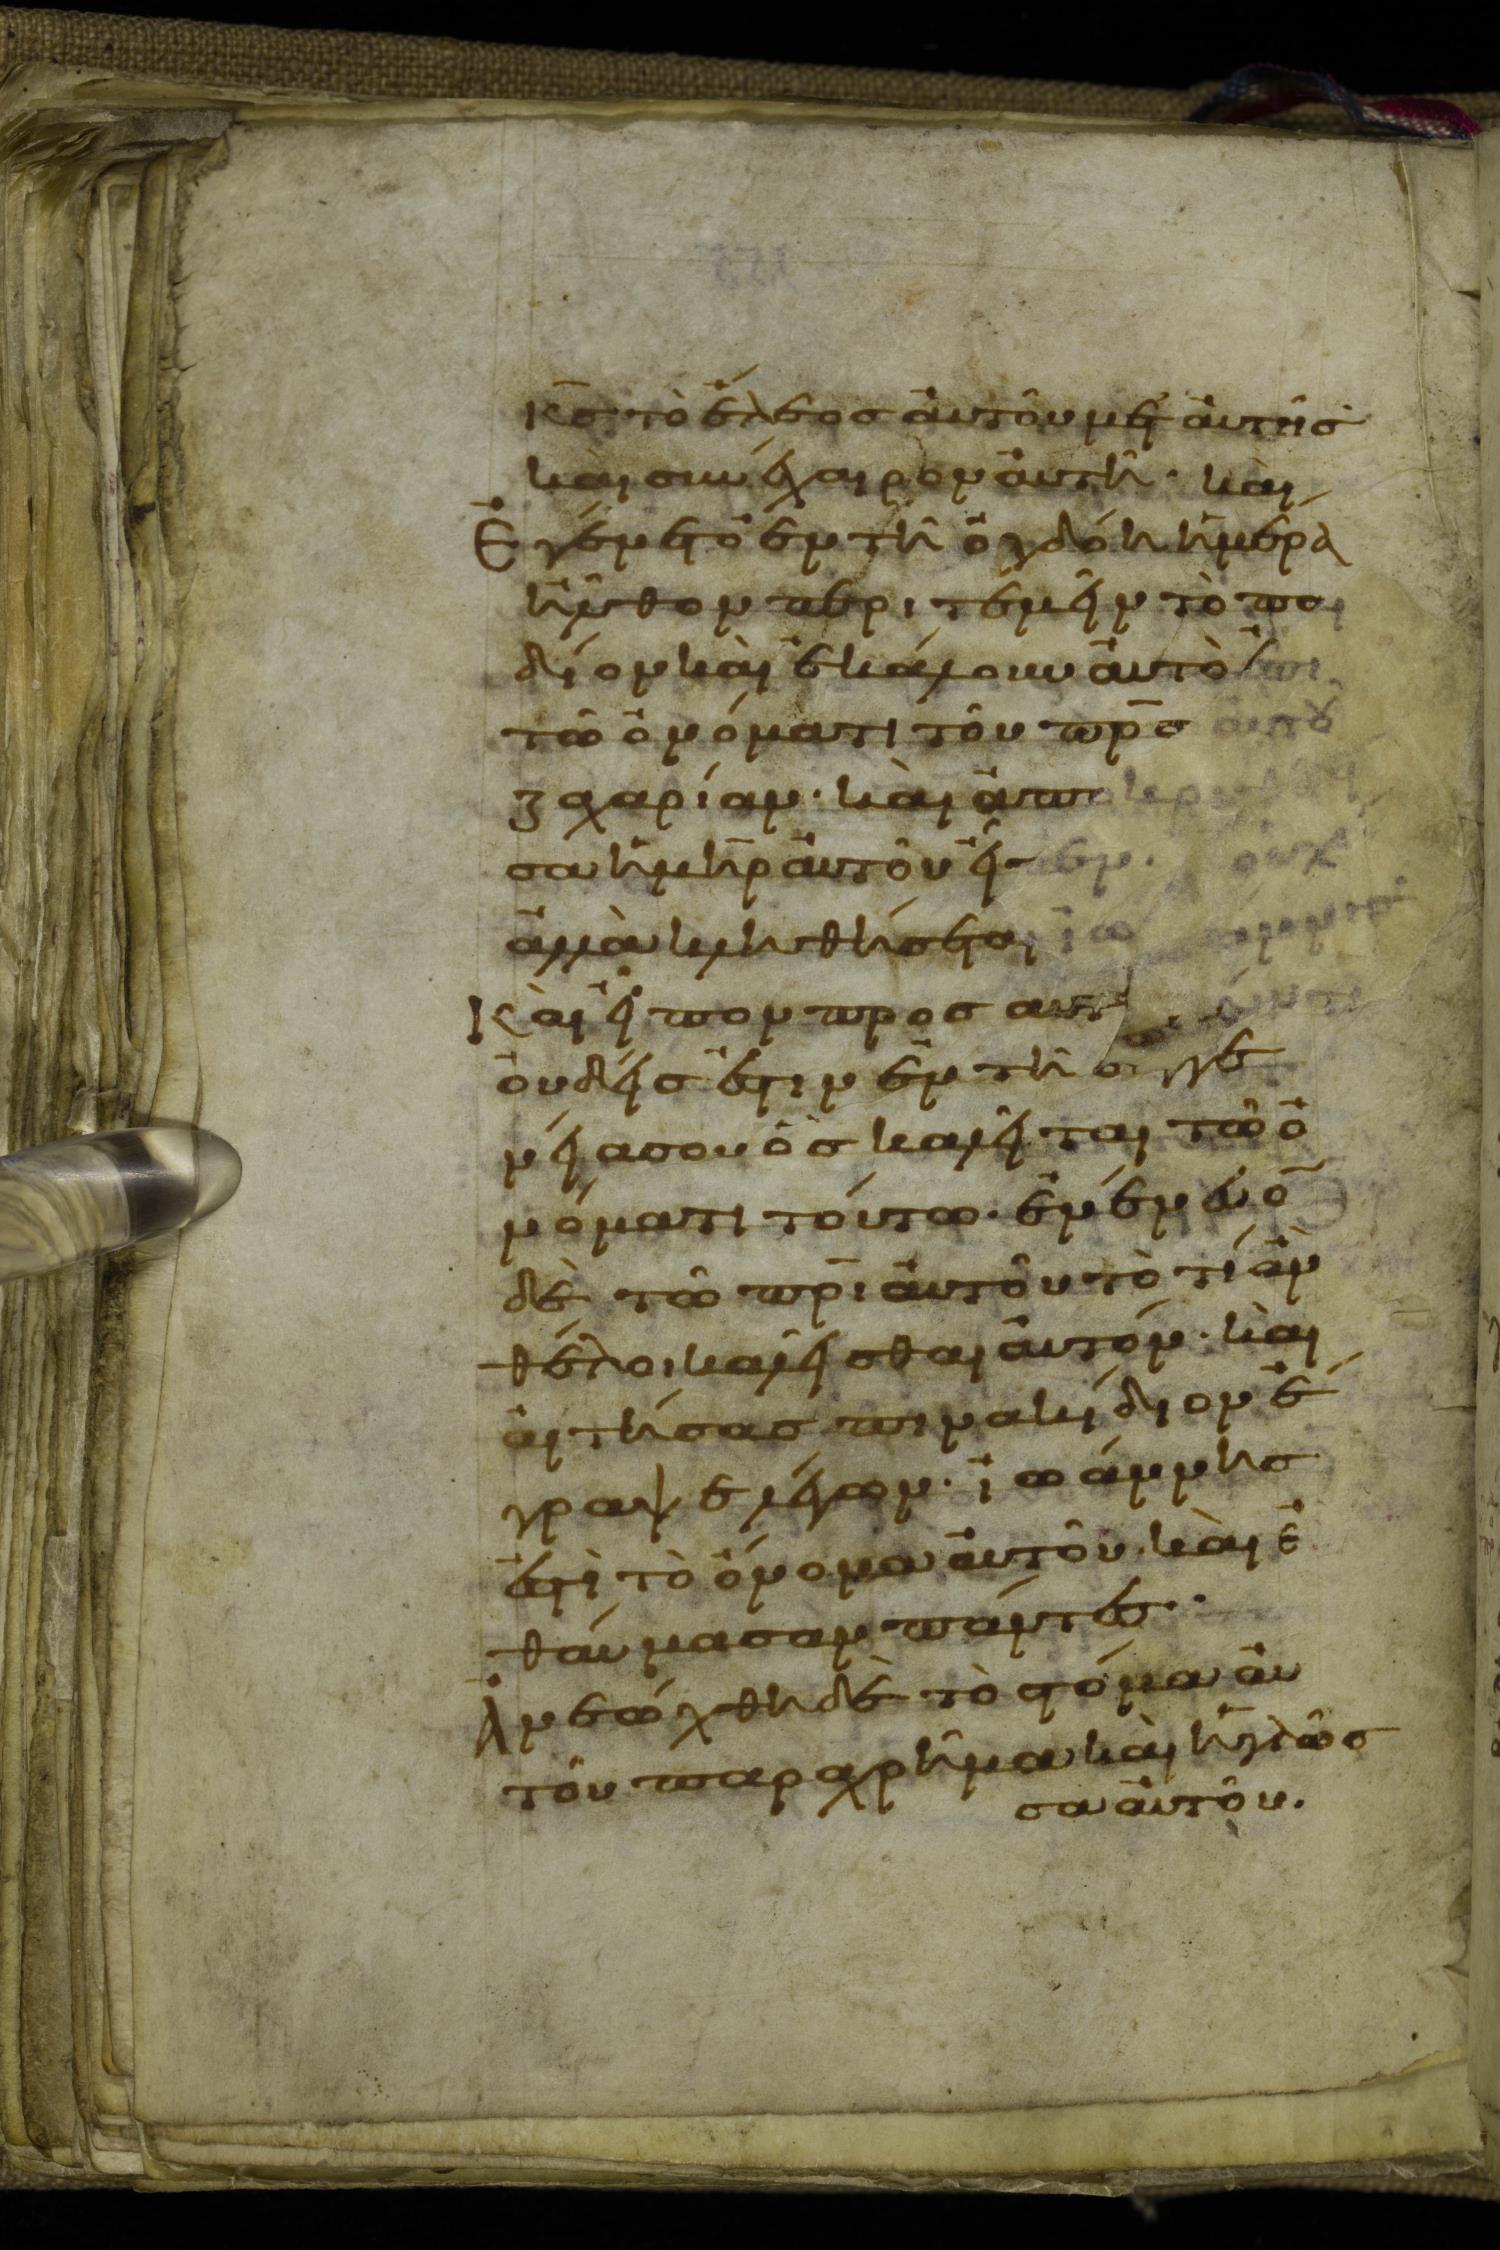 κ̅ς̅ τὸ ἔλεος ἀυτοῦ μετ ἀυτῆς
καὶ συνέχαιρον ἀυτῆ· καὶ
Ἐγένετο ἐν τῆ ὀγδόη ἡμέρα
ἦλθον περιτεμεῖν τὸ παι
δίον καὶ ἐκάλουν ἀυτὸ ἐπι
τῶ ὀνόματι τοῦ π̅ρ̅ς̅ ἀυτοῦ
ζαχαρίαν· καὶ ἀποκριθεῖ
σα ἡ μ̅η̅ρ̅ ἀυτοῦ εἶπεν· ὀυχὶ
ἀλλὰ κληθήσεται ἰωάννης
Καὶ εἶπον προς αυτὴν ὅτι
ὀυδείς ἐστιν ἐν τῆ συγγε
νεία σου ὃς καλεῖται τῶ ὀ
νόματι τούτω· ἐνένευο̅
δὲ τῶ π̅ρ̅ι̅ ἀυτοῦ τὸ τί ἂν
θέλοι καλεῖσθαι ἀυτόν· καὶ
ἀιτήσας πινακίδιον ἔ
γραψε λέγων· ἰωάννης
ἐστὶ τὸ ὄνομα ἀυτοῦ· καὶ ἐ
θαύμασαν πάντες··
Ἀνεώχθη δὲ τὸ στόμα ἀυ
τοῦ παραχρῆμα καὶ ἡ γλῶσ
σα ἀυτοῦ.